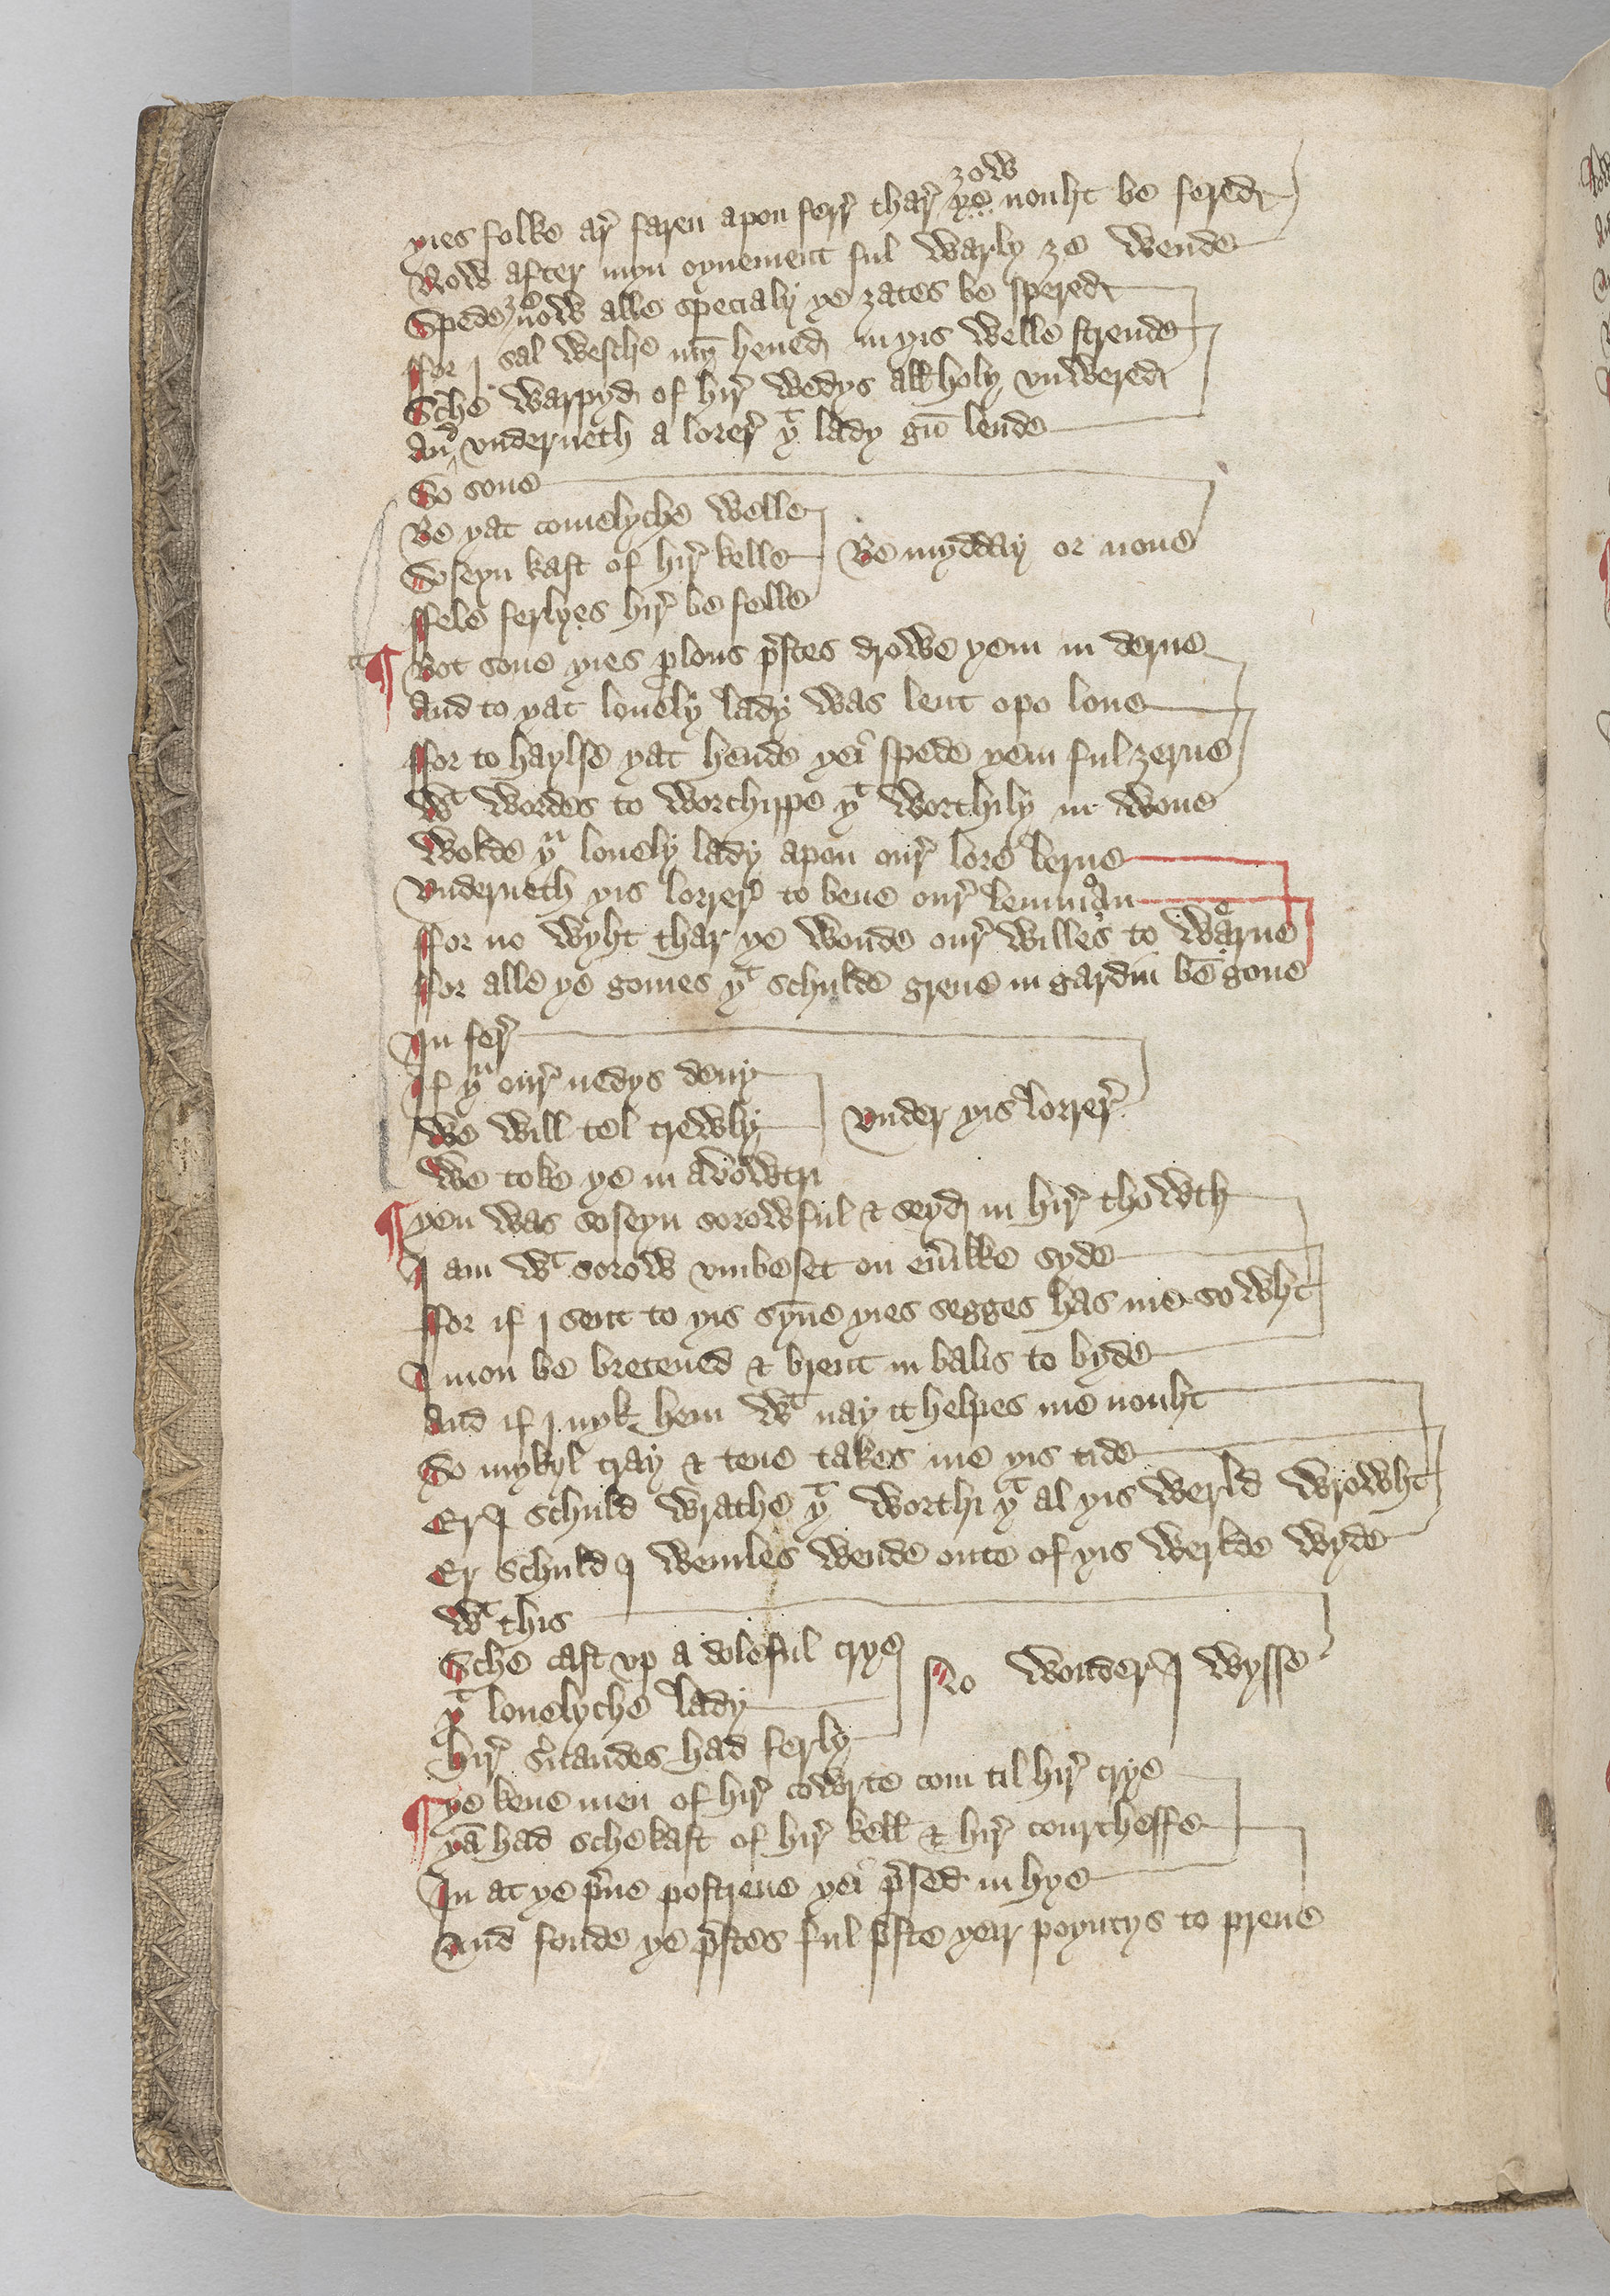 zow
yies folke ar̃ faren apon ferr̃ thar̃ ye nouht be fered
Now after myn oynement ful warly ze wende
Spedes zow alle specialy ye zates be spered
ffor j sal wesche my̅ heued in yis welle strende
Sche warpyd of hir̃ wedys all holy vnwered
And vnderneth a lorer̃ yͭ lady gu̅ lende
So sone
Be yat comelyche welle
Soseyn kast of hir̃ kelle
Be mydday or none
ffele ferlyes hir̃ be felle
¶ Bot sone yies p̱lous p̃stes drowe yem in derne
And to yat louely lady was lent opo lone
ffor to haylse yat hende yei spede yem ful zerne
Wͭ wordes to worchippe yͭ worthily in wone
Wolde yͧ louely lady apon our̃ lore lerne
Vnderneth yis lorrer̃ to bene our̃ lemmon
ffor no wyht thar ye wonde our̃ willes to werne
ffor alle ye gomes yͭ schulde greue in gardin be̅ gone
In fer̃
If yͧ our̃ nedys deny
We will tel trewly
Vnder yis lorrer̃
We toke ye in avowtri
¶ yen was soseyn sorowful & seyd in hir̃ thowth
I am wͭ sorow vmbeset on eu̅ilke syde
ffor if j sent to yis syn̅e yies segges has me sowht
I mon be bretened & brent in balis to byde
And if j nyk hem wͭ nay it helpes me nouht
So mykyl tray & tene takes me yis tide
Er I schuld wrathe yͭ worthi yͭ al yis werld wrowht
Er schuld I wemles wende oute of yis werlde wyde
Wͭ this
Sche cast vp a doleful crye
yͭ louelyche lady
No wonder I wysse
Hir̃ s̃uandes had ferly
¶ ye kene men of hir̃ cowrte com til hir̃ crye
ya̅ had sche kast of hir̃ kell & hir̃ courcheffe
In at ye p̃ue postrene yei p̃sed in hye
And fonde ye p̃stes ful p̃ste yeir poyntys to preue